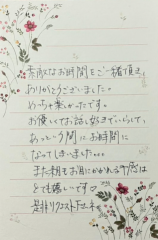 素敵なお時間をご一緒で頂き、
ありがとうございました。
めっちゃ楽しかったです。
お優しくてお話し好きでいらして、
あっという間にお時間に
なってしまいました。。。
また 朝もお目にかかれる
とても嬉しいです♡
是非リクエスト下さいネ。